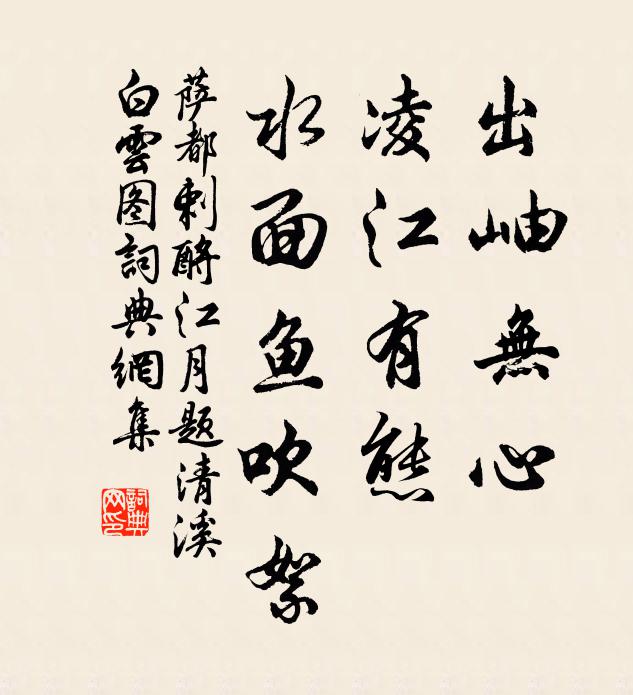 出岫無心
凌江有態
水面鱼吹絮
萨都剌酹江月题清溪
白雲图詞典網集
詞典网印